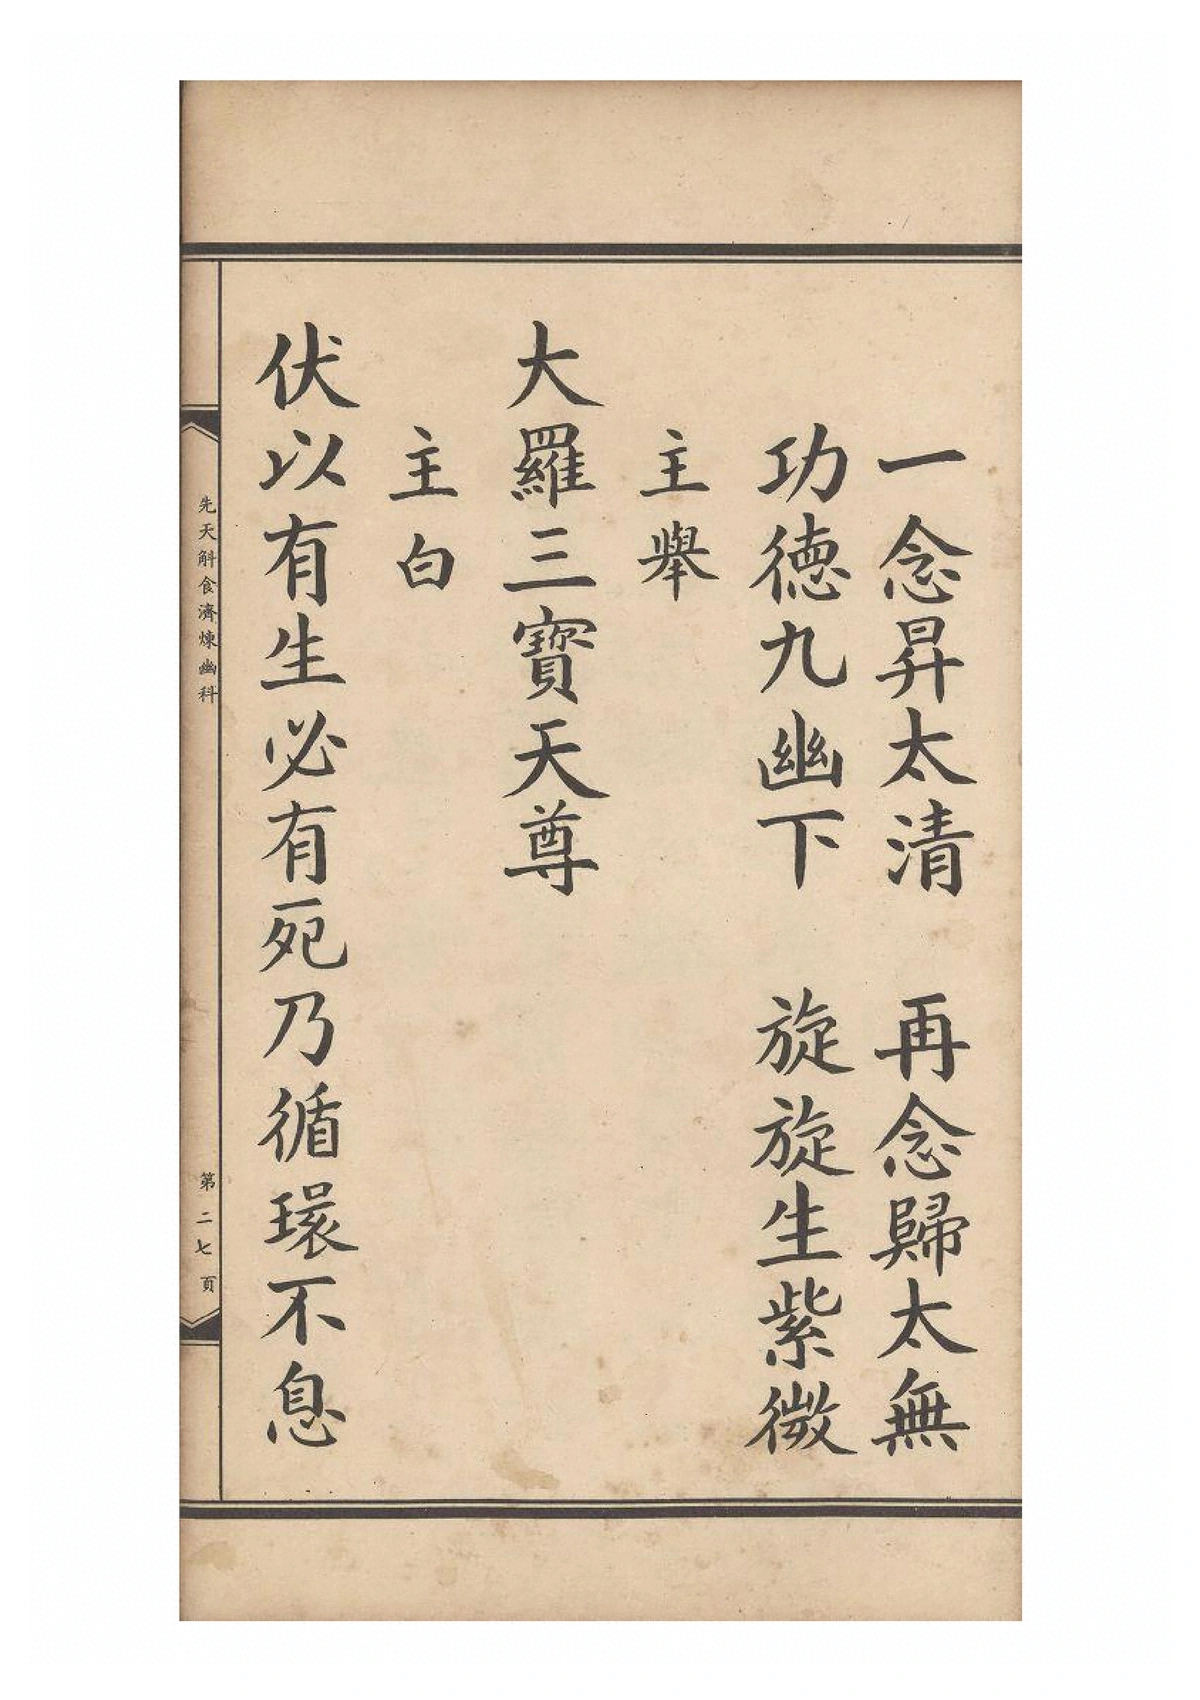 一念昇太清　再念歸太無
功德九幽下　旋旋生紫微
主舉
大羅三寶天尊
主白
伏以有生必有死乃循環不息
先天斛食濟煉幽科
第二七頁